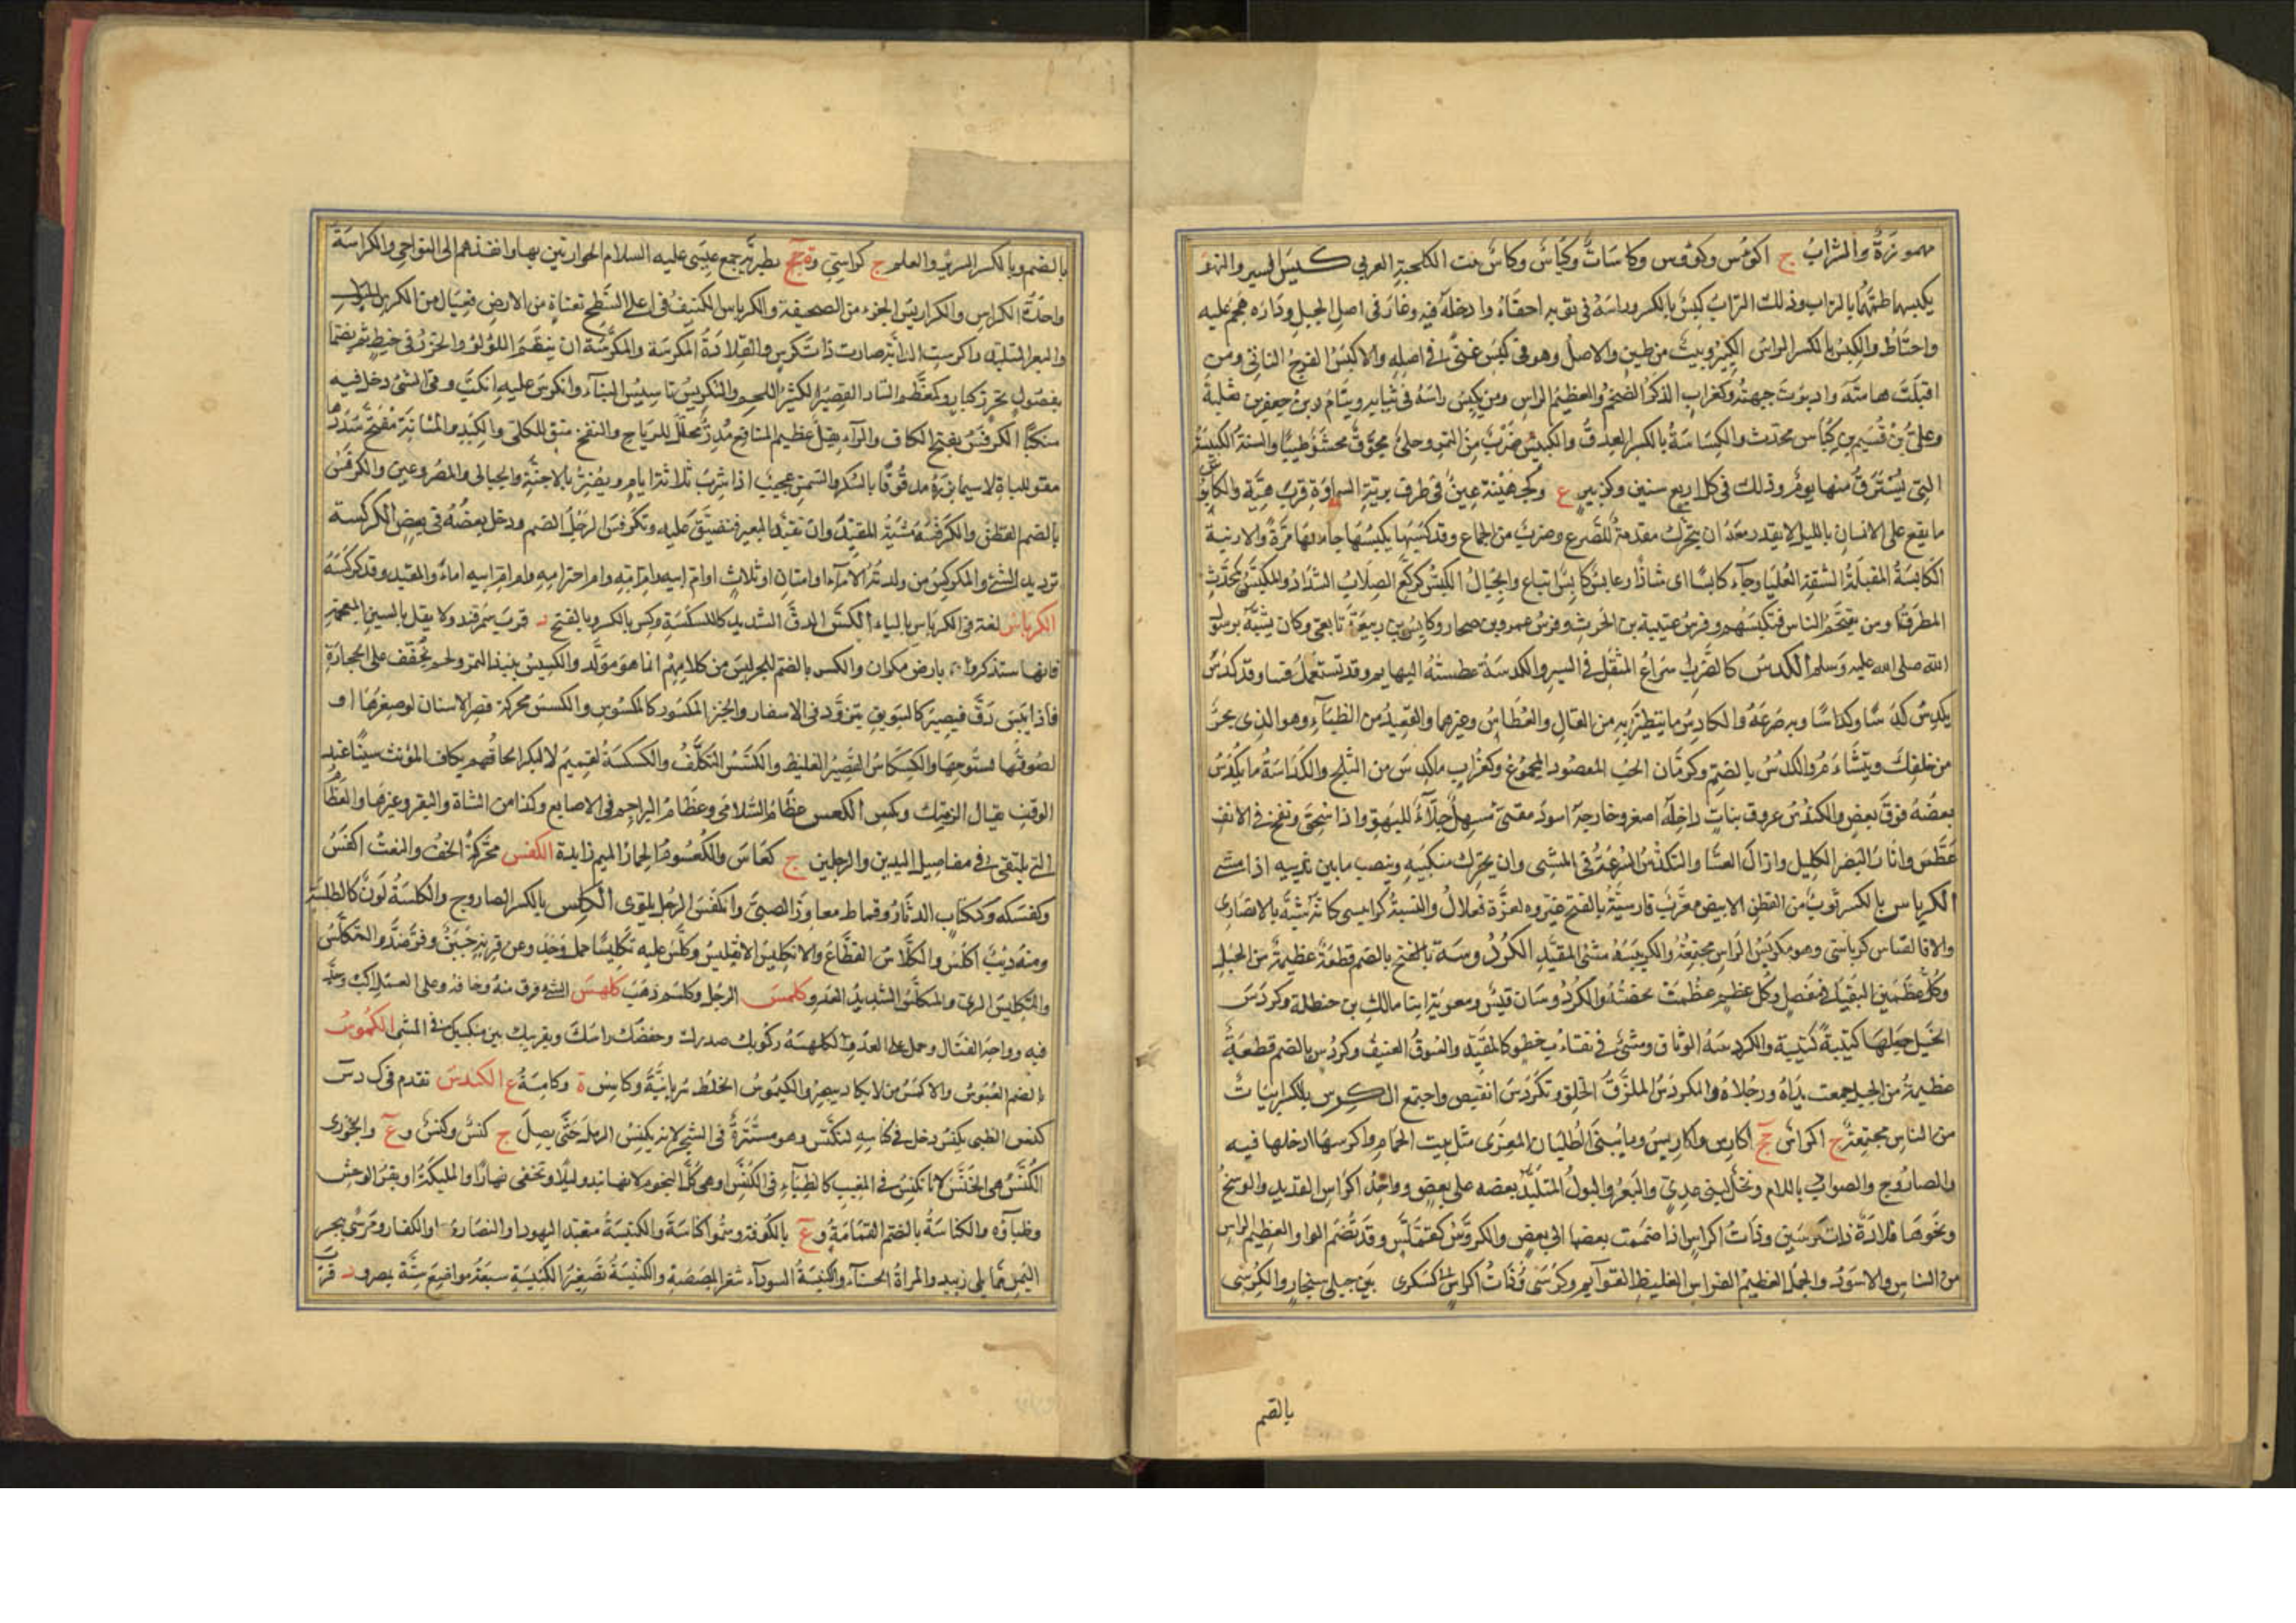 مهموزة والشراب ج اكؤس وكؤوس وكاسات وكياس وكاس بنت الكلحبة العرني كبس البير والنهر
يكبسهما طمهما بالتراب وذلك التراب كبس بالكسر وراسه في ثوبه اخفاه وادخله فيه وغار في اصل الجبل وداره هجم عليه
واحتاط والكبس بالكسر الراس الكبير وبيت من طين والاصل وهو في كبس غنى في اصله والاكبس الفرج الناتئ ومن
اقبلت هامته وادبرت جبهته وكغراب الذكر الضخم والعظيم الراس ومن يكبس راسه في ثيابه وينام وبن جعفر بن ثعلبة
وعلى بن قسيم بن كباس محدث والكباسة بالكسر العذق والكبيس ضرب من التمر وحلى مجوف محشو طيبا والسنة الكبيسة
التي يسترق منها يوم وذلك في كل اربع سنين وكزبير ع وكجهينة عين في طرف برية السماوة قرب هيت والكابوس
ما يقع على الانسان بالليل لا يقدر معه ان يتحرك مقدمة للصرع وضرب من الجماع وقد كبسها يكبسها جامعها مرة والارنبة
الكابسة المقبلة الشفة العليا وجاء كابسا اى شادا وعابس كابس اتباع والجبال الكبس كركع الصلاب الشداد والمكبس كمحدث
المطرق او من يقتحم الناس فيكبسهم وفرس عتيبة بن الحرث وفرس عمرو بن صحار وكابس بن ربيعة تابعي وكان يشبه برسول
الله صلى الله عليه وسلم الكدس كالضرب اسراع المثقل في السير والكدسة عطسة البهايم وقد تستعمل فينا وقد كدس
يكدس كدسا وكداسا وبه صرعه والكادس ما يتطير به من الفال والعطاس وغيرهما والقعيد من الظباء وهو الذى يجئ
من خلفك ويتشاءم والكدس بالضم وكرمان الحب المحصود المجموع وكغراب ما كدس من الثلج والكداسة ما يكدس
بعضه فوق بعض والكندس عروق نبات داخله اصفر وخارجه اسود مقيئ مسهل جلاء للبهق واذا سحق ونفخ في الانف
عطس وانار البصر الكليل وازال العشا والتكدس السرعة في المشي وان يحرك منكبيه وينصب ما بين يديه اذا مشى
الكرباس بالكسر ثوب من القطن الابيض معرب فارسيته بالفتح غيروه لعزة فعلال والنسبة كرابيسى كانه شبه بالانصارى
والا فالقياس كرباسي وهو مكربس الراس مجتمعه والكربسة مشى المقيد الكردوسة بالضم قطعة عظيمة من الخيل
وكل عظمين التقيا في مفصل وكل عظيم عظمت نحضته والكردوسان قيس ومعوية ابنا مالك بن حنظلة وكردس
الخيل جعلها كتيبة كتيبة والكردسة الوثاق ومشى في تقارب خطو كالمقيد والسوق العنيف وكردس بالضم قطعة
عظيمة من الخيل جمعت يداه ورجلاه والمكردس الملزز الخلق وتكردس انقبض واجتمع الكرس بالكسر ابيات
من الناس مجتمعة ج اكراس جج اكارس واكاريس وما يبنى لطليان المعزى مثل بيت الحمام واكرسها ادخلها فيه
والصاروج والصواب باللام ونخل لبنى عدي والبعر والبول المتلبد بعضه على بعض وواحد اكراس القديد والوشح
ونحوها قلادة ذات كرسين وذات اكراس اذا ضممت بعضها الى بعض والكروس كعملس وقد تضم الواو العظيم الراس
من الناس والاسود والجمل العظيم الفراسن الغليظ القوايم وكرسى وذات اكراس كسكرى بين جبلى سنجار والكرسى
بالضم
بالضم وبالكسر السرير والعلم ج كراسي وة جج بطبرية جمع عيسى عليه السلام الحواريين بها وانفذهم الى النواحى والكراسة
واحدة الكراس والكراريس الجزء من الصحيفة والكرياس الكنيف في اعلى السطح بقناة من الارض فعيال من الكرس للبول
والبعر المتلبد واكرست الدابة صارت ذات كرس والقلادة المكرسة والمكرسة ان ينظم اللؤلؤ والخرز في خيط ثم يضما
بفصول بخرز كبار وكمعظم التار القصير الكثير اللحم والتكريس تاسيس البناء وانكرس عليه انكب وفي الشئ دخل فيه
منكبا الكرفس بفتح الكاف والراء بقل عظيم المنافع مدر محلل للرياح والنفخ منق للكلى والكبد والمثانة مفتح سددها
مقو للباه لاسيما بزره مدقوقا بالسكر والسمن عجيب اذا شرب ثلاثة ايام ويضر بالاجنة والحبالى والمصروعين والكرفس
بالضم القطن والكرفسة مشية المقيد وان تقيد البعير فتضيق عليه وتكرفس الرجل انضم ودخل بعضه في بعض الكركسة
ترديد الشئ والمكركس من ولدته الاماء او امتان او ثلاث او ام ابيه وام امه وام ام امه وام ام ابيه اماء والمقيد وقد كركسه
الكرياس لغة في الكرباس بالباء الكس الدق الشديد كالكسكسة وكس بالكسر وبالفتح د قرب سمرقند ولا يقل بالشين المعجمة
فانها ستذكر بارض مكران والكس بالضم للحر ليس من كلامهم انما هو مولد والكسيس نبيذ التمر ولحم يجفف على الحجارة
فاذا يبس دق فيصير كالسويق يتزود في الاسفار والخبز المكسور كالمكسوس والكسس محركة قصر الاسنان او صغرها او
لصوقها بسنوخها والكسكاس القصير الغليظ والتكسس التكلف والكسكسة لتميم لا لبكر الحاقهم بكاف المؤنث سينا عند
الوقف يقال اكرمتك وبكس الكعس عظام السلامى وعظام البراجم في الاصابع وكذا من الشاة والبقر وغيرها والعظام
التي يلتقى في مفاصل اليدين والرجلين ج كعاس والكعسوم الحمار الميم زايدة الكفس محركة الحنف والنعت اكفس
وكفسكه وككتاب الدثار وقماط معاوز الصبى وانكفس الرجل التوى الكلس بالكسر الصاروج والكلسة لون كالطلسة
ومنه ذئب اكلس والكلاس القطاع والانكليس الانقليس وكلس عليه تكليسا حمل وجد وعن قرنه جبن وفر ضد والتكلس
والتكليس الري والمكلس الشديد العدو وكلمس الرجل وكلسم ذهب كلهس الشئ فرق منه وخافه وعلى العمل اكب وجد
فيه وواجه القتال وحمل على العدو الكلهسة ركوبك صدرك وخفضك راسك وتقريبك بين منكبيك في المشي الكموس
بالضم العبوس والاكمس من لا يكاد يبصر والكيموس الخلط سريانية وكامس ة وكامسة ع الكندس تقدم في ك د س
كنس الظبي يكنس دخل في كناسه لتكنس وهو مستتره في الشجر لانه يكنس الرمل حتى يصل ج كنس وكنس وع والجوارى
الكنس هي الخنس لانها تكنس في المغيب كالظباء في الكنس او هي كل النجوم لانها تبدو ليلا وتخفى نهارا والمليكة او بقر الوحش
وظباؤه والكناسة بالضم القمامة وع بالكوفة وسموا كناسة والكنيسة متعبد اليهود او النصارى او الكفار ومرسى ببحر
اليمن مما يلى زبيد والمراة الحسناء والكنيسة السوداء ثغر المصيصة والكنيسة تصغير الكنيسة سبعة مواضع ستة بمصر ود قرب